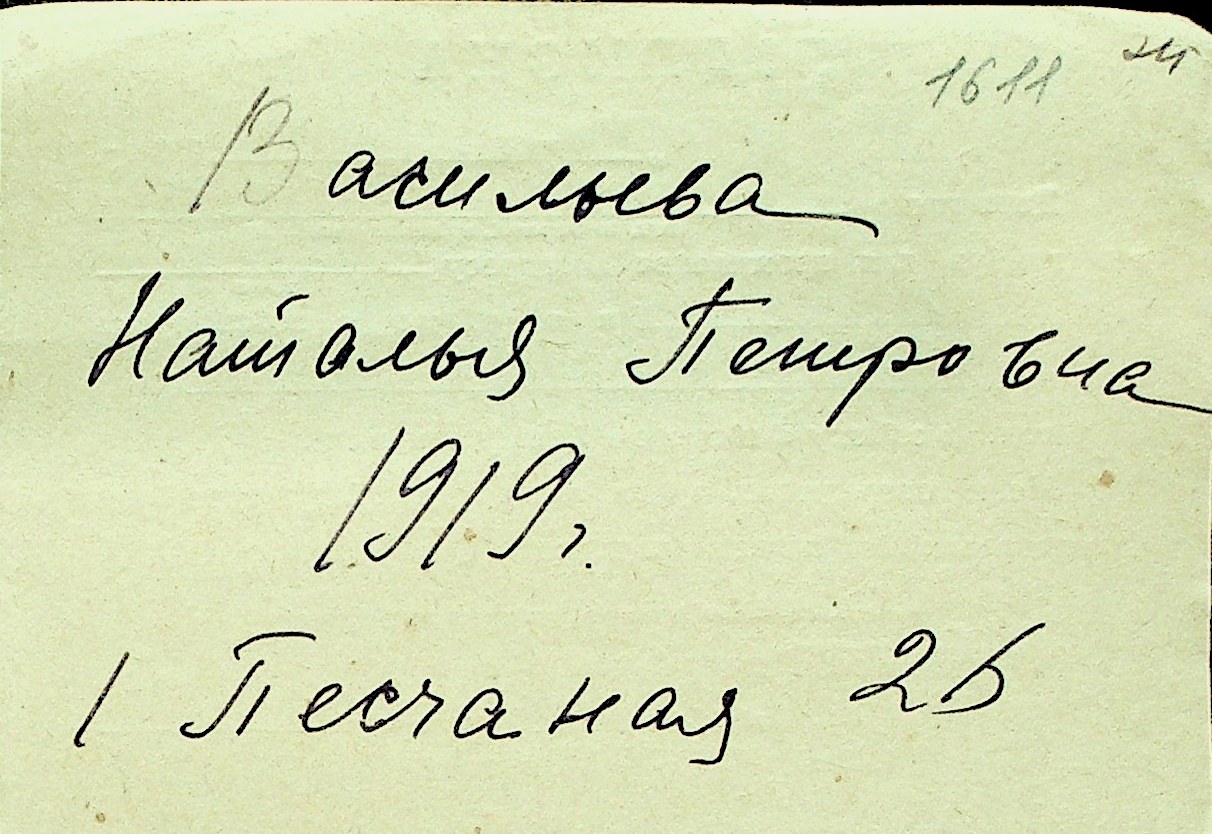 1611
Васильева
Наталья Петровна
1919г.
1 Песчаная 2Б